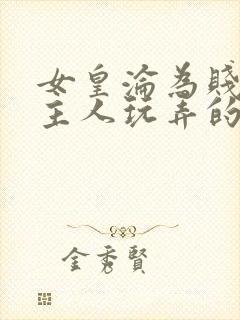 女皇淪為賤
主人玩弄的
金秀賢